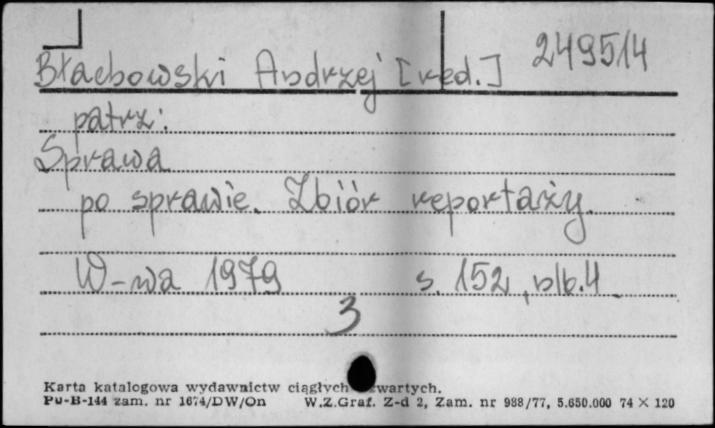 Błachowski Andrzej [red.] 249514
patrz:
Sprawa
po sprawie. Zbiór reportaży.
W-wa 1979 s. 152, nlb. 4.
3
Karta katalogowa wydawnictw ciągłych zwartych.
Pu-B-144 zam. nr 1674/DW/On W.Z.Graf. Z-d 2, Zam. nr 988/77, 5.650.000 74 × 120